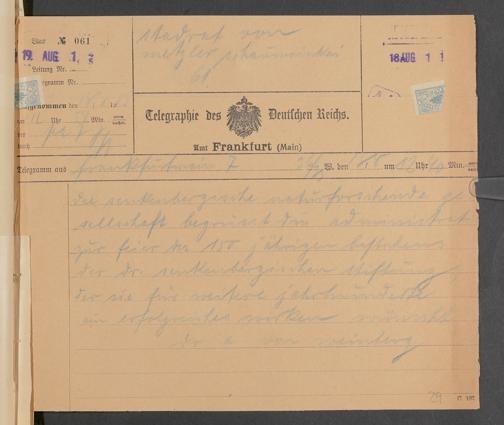 Blatt № 061
stadtrat von
metzler schaumainkai
61
19. AUG. 1
18 AUG 1 1
Leitung Nr.
Telegramm Nr.
Telegraphie des Deutschen Reichs.
Amt Frankfurt (Main)
Uhr Min.
Telegramm aus frankfurtmain 7 W. den 18 um 11 Uhr Min.
die senkenbergische naturforschende ge
sellschaft begruesst die administrat
zur feier des 150 jährigen bestehens
der dr. senkenbergischen stiftung
der sie für weitere jahrhunderte
ein erfolgreiches wirken wünscht
dr a von weinberg
29
C. 187